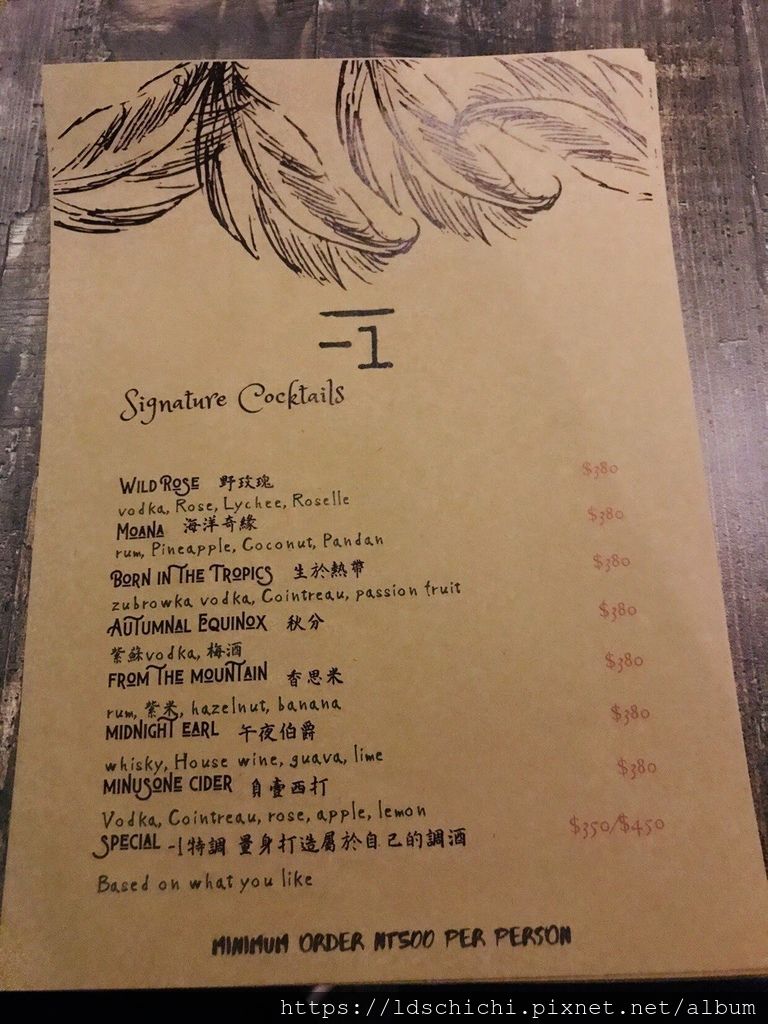 -1
Signature Cocktails
WILD ROSE 野玫瑰 $380
vodka, Rose, Lychee, Roselle
MOANA 海洋奇緣 $380
rum, Pineapple, Coconut, Pandan
BORN IN THE TROPICS 生於熱帶 $380
zubrowka vodka, Cointreau, passion fruit
AUTUMNAL EQUINOX 秋分 $380
紫蘇vodka, 梅酒
FROM THE MOUNTAIN 香思米 $380
rum, 紫米, hazelnut, banana
MIDNIGHT EARL 午夜伯爵 $380
whisky, House wine, guava, lime
MINUSONE CIDER 負壹西打 $380
Vodka, Cointreau, rose, apple, lemon
SPECIAL -1特調 量身打造屬於自己的調酒 $350/$450
Based on what you like
MINIMUM ORDER NT500 PER PERSON
https://ldschichi.pixnet.net/album